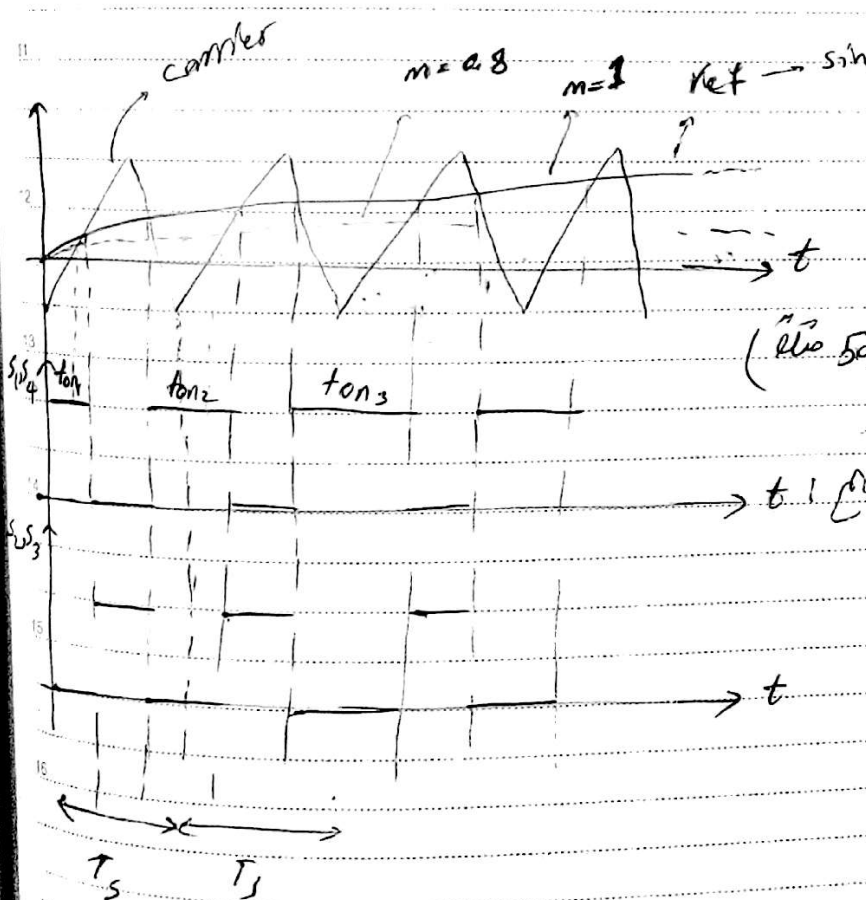 11
carrier
m=0.8
m=1
ref → sin
12
t
13
50
S1,S4
ton1
ton2
ton3
14
t
S2,S3
15
t
16
Ts
Ts